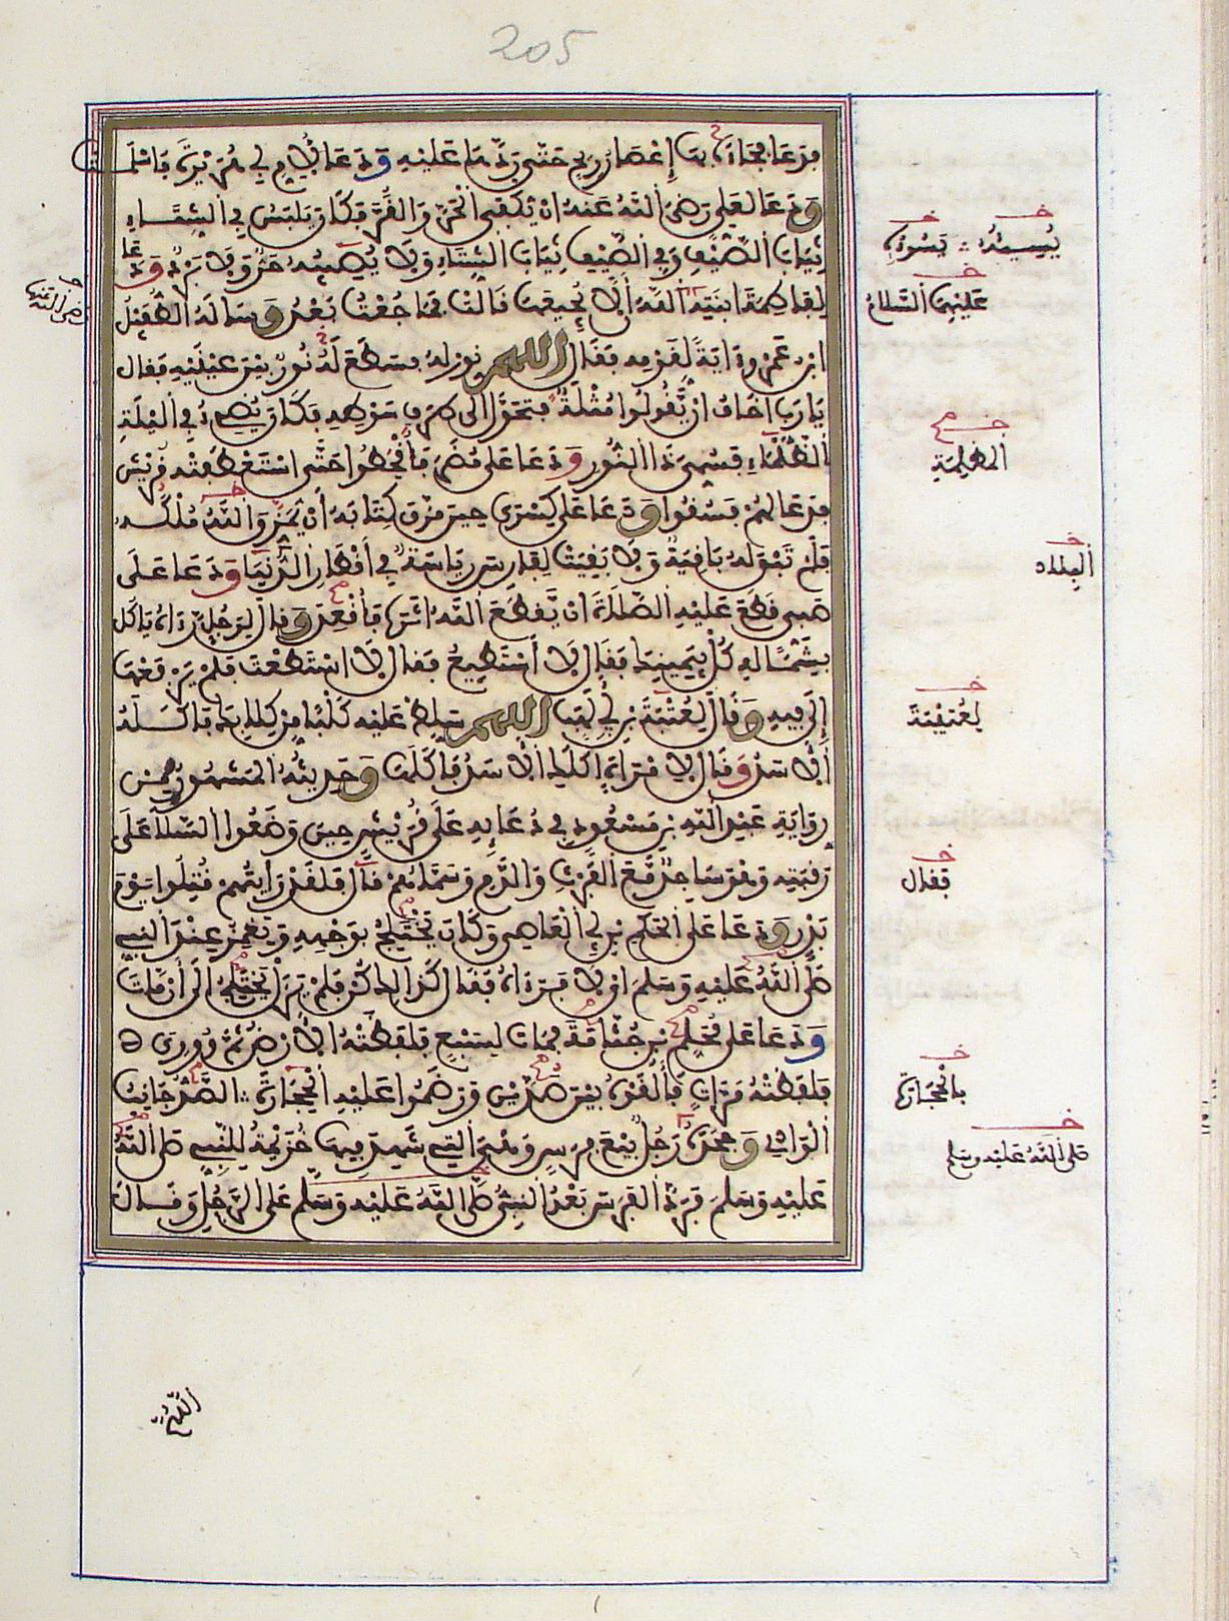 205
فدعا فجاءه بها إعصار ريح حتى ردها عليه ودعا لأم أبي هريرة فأسلمت
ودعا لعلي رضي الله عنه أن يكفى الحر والقر فكان يلبس في الشتاء
ثياب الصيف وفي الصيف ثياب الشتاء ولا يصيبه حر ولا برد ودعا
لفاطمة ابنته الله ألا يجيعها قالت فما جعت بعد وسأله الطفيل
ابن عمرو ءاية لقومه فقال اللهم نور له فسطع له نور بين عينيه فقال
يا رب أخاف أن يقولوا مثلة فتحول إلى طرف سوطه فكان يضيء في الليلة
الظلماء فسمي ذا النور ودعا على مضر فأقحطوا حتى استعطفته قريش
فدعا لهم فسقوا ودعا على كسرى حين مزق كتابه أن يمزق الله ملكه
فلم تبق له باقية ولا بقيت لفارس رياسة في أقطار الدنيا ودعا على
صبي قطع عليه الصلاة أن يقطع الله أثره فأقعد وقال لرجل رءاه يأكل
بشماله كل بيمينك فقال لا أستطيع فقال لا استطعت فلم يرفعها
إلى فيه وقال لعتبة بن أبي لهب اللهم سلط عليه كلبا من كلابك فأكله
الأسد وقال لامرأة أكلك الأسد فأكلها وحديثه المشهور من
رواية عبد الله بن مسعود في دعائه على قريش حين وضعوا السلا على
رقبته وهو ساجد مع الفرث والدم وسماهم قال فلقد رأيتهم قتلوا يوم
بدر ودعا على الحكم بن أبي العاصي وكان يختلج بوجهه ويغمز عند النبي
صلى الله عليه وسلم أي لا فرءاه فقال كذلك كن فلم يزل يختلج إلى أن مات
ودعا على محلم بن جثامة فمات لسبع فلفظته الأرض ثم ووري
فلفظته مرات فألقوه بين صدين ورضموا عليه الحجارة الصد جانب
الوادي وجحده رجل بيع فرس وهي التي شهد فيها خزيمة للنبي صلى الله
عليه وسلم فرد الفرس بعد النبي صلى الله عليه وسلم على الرجل وقال
يسوءه
عليها السلام
المظلمة
البلاد
لعتيبة
فقال
بالحجارة
صلى الله عليه وسلم
رضي الله عنها
اللهم